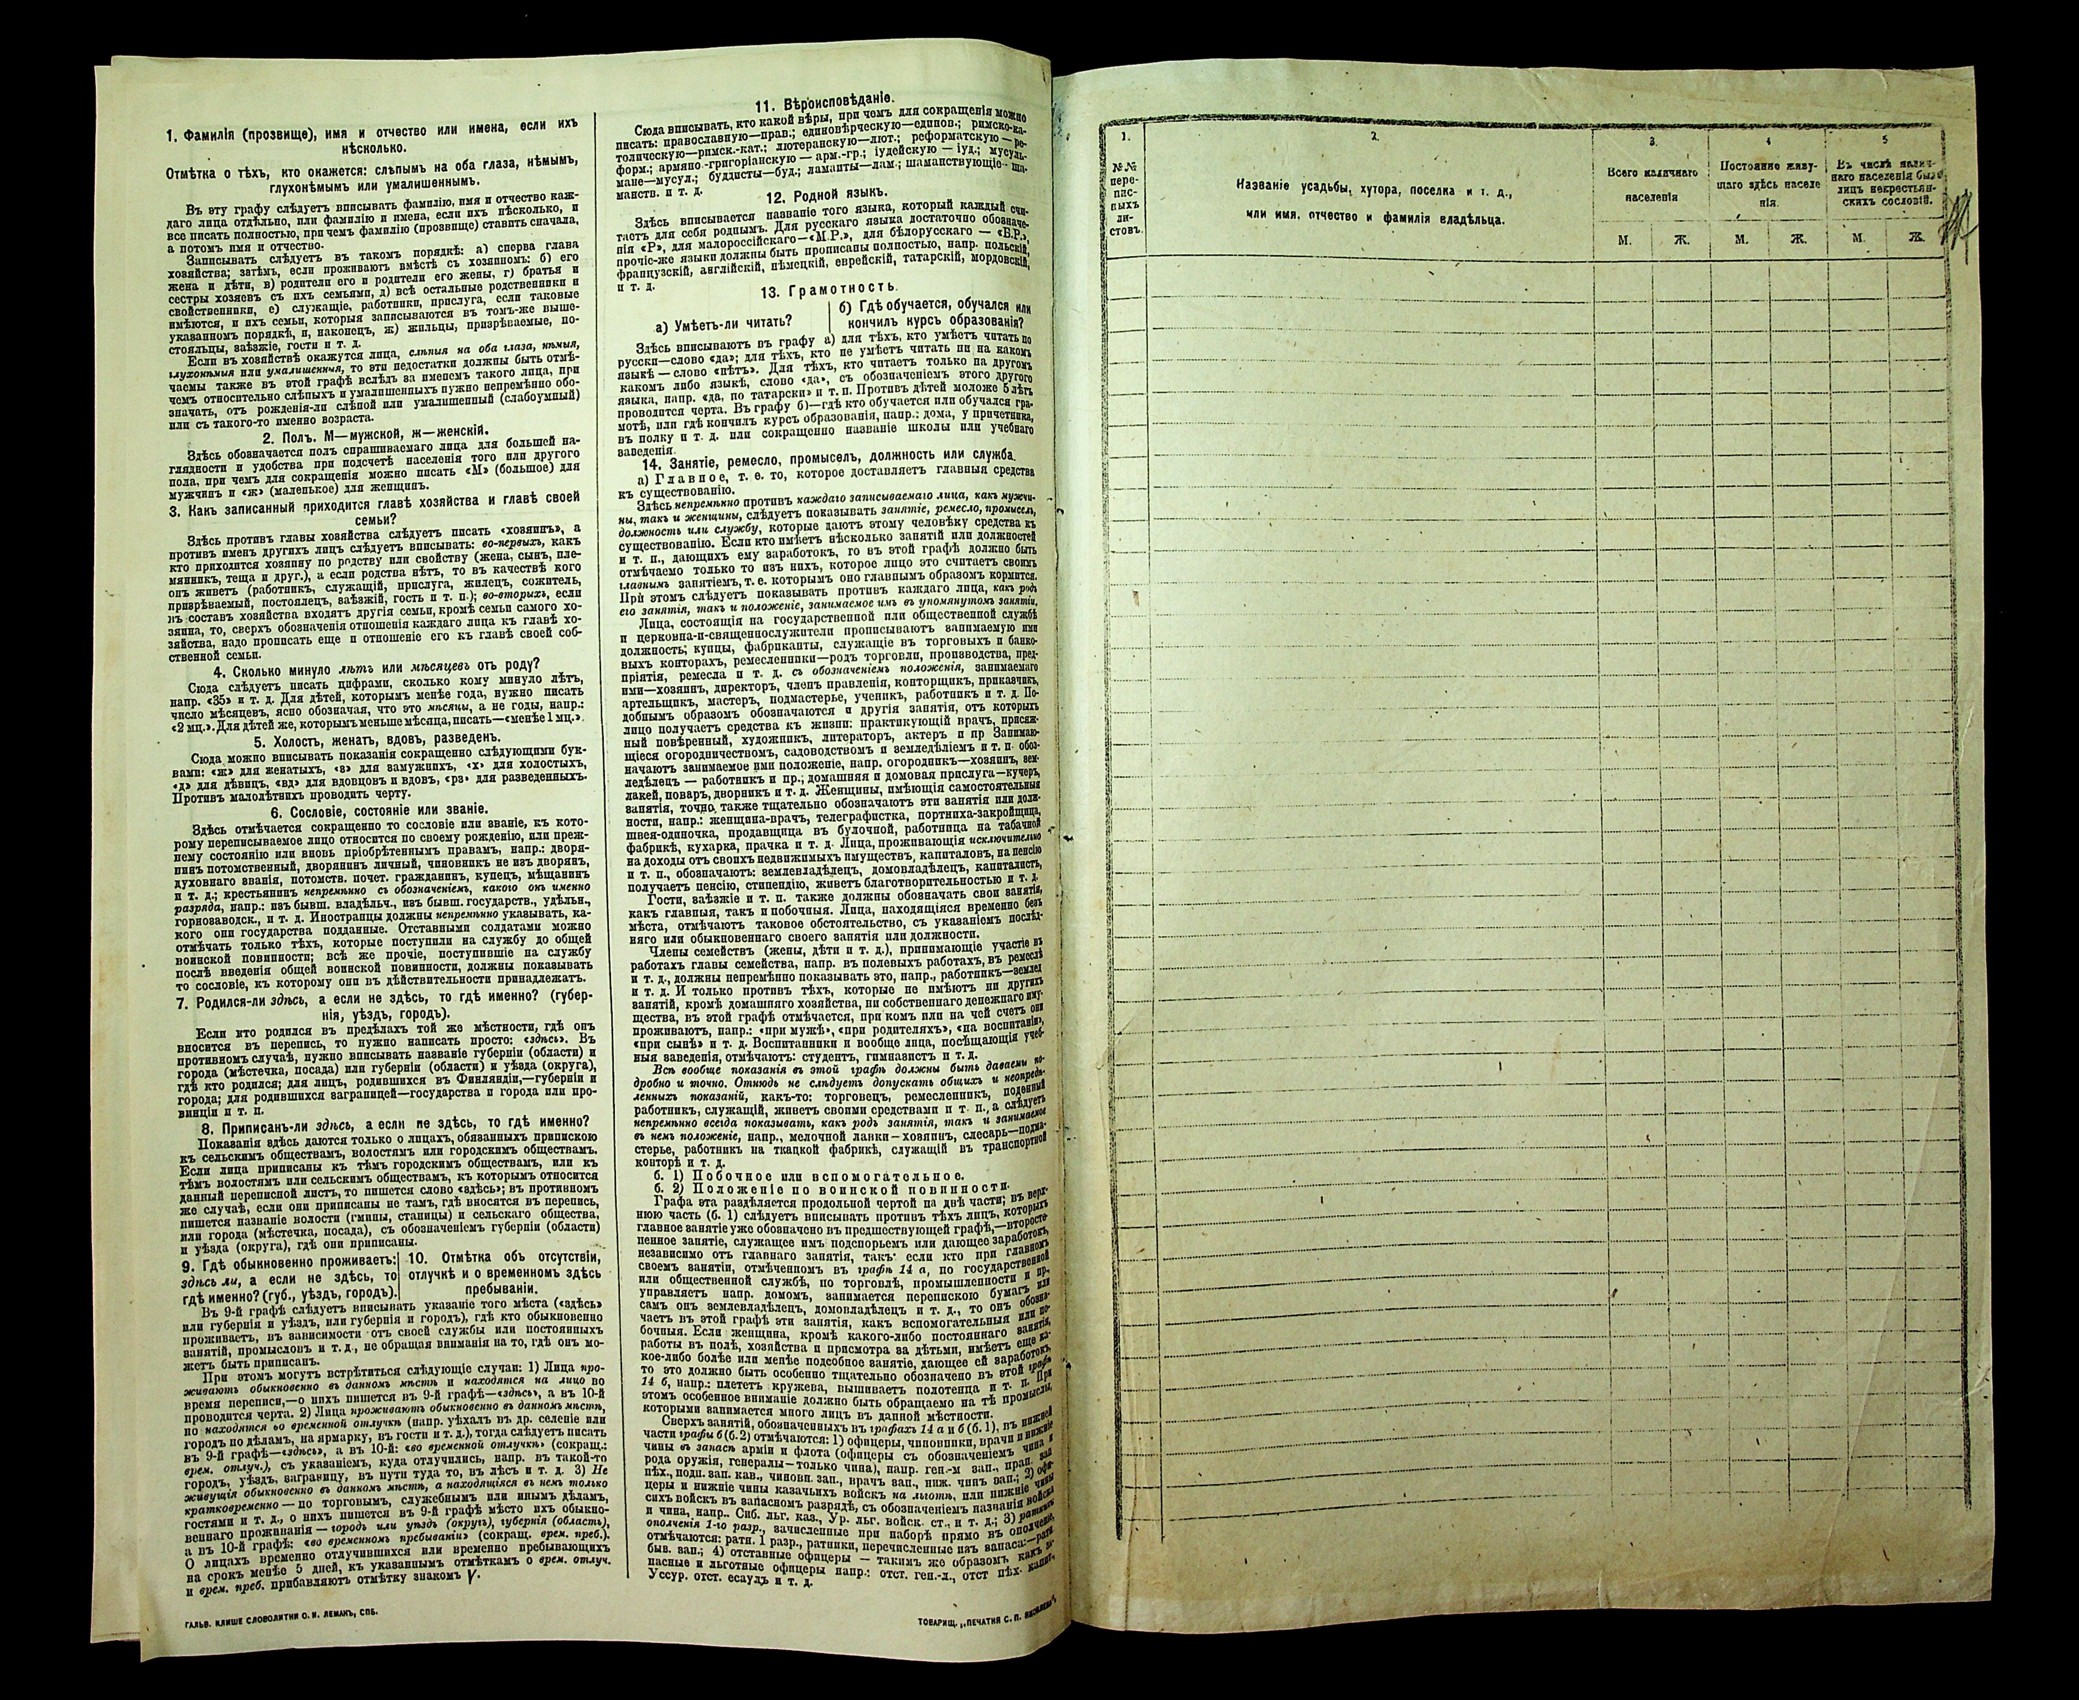 1. Фамилія (прозвище), имя и отчество или имена, если ихъ
нѣсколько.
Отмѣтка о тѣхъ, кто окажется: слѣпымъ на оба глаза, нѣмымъ,
глухонѣмымъ или умалишеннымъ.
Въ эту графу слѣдуетъ вписывать фамилію, имя и отчество каж-
даго лица отдѣльно, или фамилію и имена, если ихъ нѣсколько, и
все писать полностью, при чемъ фамилію (прозвище) ставить сначала,
а потомъ имя и отчество.
Записывать слѣдуетъ въ такомъ порядкѣ: а) сперва глава
хозяйства; затѣмъ, если проживаютъ вмѣстѣ съ хозяиномъ: б) его
жена и дѣти, в) родители его и родители его жены, г) братья и
сестры хозяевъ съ ихъ семьями, д) всѣ остальные родственники и
свойственники, е) служащіе, работники, прислуга, если таковые
имѣются, и ихъ семьи, которыя записываются въ томъ-же выше-
указанномъ порядкѣ, и, наконецъ, ж) жильцы, призрѣваемые, по-
стояльцы, заѣзжіе, гости и т. д.
Если въ хозяйствѣ окажутся лица, слѣпыя на оба глаза, нѣмыя,
глухонѣмыя или умалишенныя, то эти недостатки должны быть отмѣ-
чаемы также въ этой графѣ вслѣдъ за именемъ такого лица, при
чемъ относительно слѣпыхъ и умалишенныхъ нужно непремѣнно обо-
значать, отъ рожденія-ли слѣпой или умалишенный (слабоумный)
или съ такого-то именно возраста.
2. Полъ. М—мужской, ж—женскій.
Здѣсь обозначается полъ спрашиваемаго лица для большей на-
глядности и удобства при подсчетѣ населенія того или другого
пола, при чемъ для сокращенія можно писать «М» (большое) для
мужчинъ и «ж» (маленькое) для женщинъ.
3. Какъ записанный приходится главѣ хозяйства и главѣ своей
семьи?
Здѣсь противъ главы хозяйства слѣдуетъ писать «хозяинъ», а
противъ именъ другихъ лицъ слѣдуетъ вписывать: во-первыхъ, какъ
кто приходится хозяину по родству или свойству (жена, сынъ, пле-
мянникъ, теща и друг.), а если родства нѣтъ, то въ качествѣ кого
онъ живетъ (работникъ, служащій, прислуга, жилецъ, сожитель,
призрѣваемый, постоялецъ, заѣзжій, гость и т. п.); во-вторыхъ, если
въ составъ хозяйства входятъ другія семьи, кромѣ семьи самого хо-
зяина, то, сверхъ обозначенія отношенія каждаго лица къ главѣ хо-
зяйства, надо прописать еще и отношеніе его къ главѣ своей соб-
ственной семьи.
4. Сколько минуло лѣтъ или мѣсяцевъ отъ роду?
Сюда слѣдуетъ писать цифрами, сколько кому минуло лѣтъ,
напр. «35» и т. д. Для дѣтей, которымъ менѣе года, нужно писать
число мѣсяцевъ, ясно обозначая, что это мѣсяцы, а не годы, напр.:
«2 мц.». Для дѣтей же, которымъ меньше мѣсяца, писать—«менѣе 1 мц.».
5. Холостъ, женатъ, вдовъ, разведенъ.
Сюда можно вписывать показанія сокращенно слѣдующими бук-
вами: «ж» для женатыхъ, «з» для замужнихъ, «х» для холостыхъ,
«д» для дѣвицъ, «вд» для вдовцовъ и вдовъ, «рз» для разведенныхъ.
Противъ малолѣтнихъ проводить черту.
6. Сословіе, состояніе или званіе.
Здѣсь отмѣчается сокращенно то сословіе или званіе, къ кото-
рому переписываемое лицо относится по своему рожденію, или преж-
нему состоянію или вновь пріобрѣтеннымъ правамъ, напр.: дворя-
нинъ потомственный, дворянинъ личный, чиновникъ не изъ дворянъ,
духовнаго званія, потомств. почет. гражданинъ, купецъ, мѣщанинъ
и т. д.; крестьянинъ непремѣнно съ обозначеніемъ, какого онъ именно
разряда, напр.: изъ бывш. владѣльч., изъ бывш. государств., удѣльн.,
горнозаводск., и т. д. Иностранцы должны непремѣнно указывать, ка-
кого они государства подданные. Отставными солдатами можно
отмѣчать только тѣхъ, которые поступили на службу до общей
воинской повинности; всѣ же прочіе, поступившіе на службу
послѣ введенія общей воинской повинности, должны показывать
то сословіе, къ которому они въ дѣйствительности принадлежатъ.
7. Родился-ли здѣсь, а если не здѣсь, то гдѣ именно? (губер-
нія, уѣздъ, городъ).
Если кто родился въ предѣлахъ той же мѣстности, гдѣ онъ
вносится въ перепись, то нужно написать просто: «здѣсь». Въ
противномъ случаѣ, нужно вписывать названіе губерніи (области) и
города (мѣстечка, посада) или губерніи (области) и уѣзда (округа),
гдѣ кто родился; для лицъ, родившихся въ Финляндіи,—губерніи и
города; для родившихся заграницей—государства и города или про-
винціи и т. п.
8. Приписанъ-ли здѣсь, а если не здѣсь, то гдѣ именно?
Показанія здѣсь даются только о лицахъ, обязанныхъ припискою
къ сельскимъ обществамъ, волостямъ или городскимъ обществамъ.
Если лица приписаны къ тѣмъ городскимъ обществамъ, или къ
тѣмъ волостямъ или сельскимъ обществамъ, къ которымъ относится
данный переписной листъ, то пишется слово «здѣсь»; въ противномъ
же случаѣ, если они приписаны не тамъ, гдѣ вносятся въ перепись,
пишется названіе волости (гмины, станицы) и сельскаго общества,
или города (мѣстечка, посада), съ обозначеніемъ губерніи (области)
и уѣзда (округа), гдѣ они приписаны.
9. Гдѣ обыкновенно проживаетъ:
здѣсь ли, а если не здѣсь, то
гдѣ именно? (губ., уѣздъ, городъ).
10. Отмѣтка объ отсутствіи,
отлучкѣ и о временномъ здѣсь
пребываніи.
Въ 9-й графѣ слѣдуетъ вписывать указаніе того мѣста («здѣсь»
или губернія и уѣздъ, или губернія и городъ), гдѣ кто обыкновенно
проживаетъ, въ зависимости отъ своей службы или постоянныхъ
занятій, промысловъ и т. д., не обращая вниманія на то, гдѣ онъ мо-
жетъ быть приписанъ.
При этомъ могутъ встрѣтиться слѣдующіе случаи: 1) Лица про-
живаютъ обыкновенно въ данномъ мѣстѣ и находятся на лицо во
время переписи,—о нихъ пишется въ 9-й графѣ—«здѣсь», а въ 10-й
проводится черта. 2) Лица проживаютъ обыкновенно въ данномъ мѣстѣ,
но находятся во временной отлучкѣ (напр. уѣхалъ въ др. селеніе или
городъ по дѣламъ, на ярмарку, въ гости и т. д.), тогда слѣдуетъ писать
въ 9-й графѣ—«здѣсь», а въ 10-й: «во временной отлучкѣ» (сокращ.:
врем. отлуч.), съ указаніемъ, куда отлучились, напр. въ такой-то
городъ, уѣздъ, заграницу, въ пути туда то, въ лѣсъ и т. д. 3) Не
живущія обыкновенно въ данномъ мѣстѣ, а находящіяся въ немъ только
кратковременно — по торговымъ, служебнымъ или инымъ дѣламъ,
гостями и т. д., о нихъ пишется въ 9-й графѣ мѣсто ихъ обыкно-
веннаго проживанія — городъ или уѣздъ (округъ), губернія (область),
а въ 10-й графѣ: «во временномъ пребываніи» (сокращ. врем. преб.).
О лицахъ временно отлучившихся или временно пребывающихъ
на срокъ менѣе 5 дней, къ указаннымъ отмѣткамъ о врем. отлуч.
и врем. преб. прибавляютъ отмѣтку знакомъ V.
ГАЛЬВ. КЛИШЕ СЛОВОЛИТНИ О. И. ЛЕМАНЪ, СПБ.
11. Вѣроисповѣданіе.
Сюда вписывать, кто какой вѣры, при чемъ для сокращенія можно
писать: православную—прав.; единовѣрческую—единов.; римско-ка-
толическую—римск.-кат.; лютеранскую—лют.; реформатскую — ре-
форм.; армяно-григоріанскую — арм.-гр.; іудейскую — іуд.; мусуль-
мане—мусул.; буддисты—буд.; ламаиты—лам.; шаманствующіе—ша-
манств. и т. д.
12. Родной языкъ.
Здѣсь вписывается названіе того языка, который каждый счи-
таетъ для себя роднымъ. Для русскаго языка достаточно обозначе-
нія «Р», для малороссійскаго—«М.Р.», для бѣлорусскаго — «Б.Р.»,
прочіе-же языки должны быть прописаны полностью, напр. польскій,
французскій, англійскій, нѣмецкій, еврейскій, татарскій, мордовскій,
и т. д.
13. Грамотность.
а) Умѣетъ-ли читать?
б) Гдѣ обучается, обучался или
кончилъ курсъ образованія?
Здѣсь вписываютъ въ графу а) для тѣхъ, кто умѣетъ читать по
русски—слово «да»; для тѣхъ, кто не умѣетъ читать ни на какомъ
языкѣ — слово «нѣтъ». Для тѣхъ, кто читаетъ только на другомъ
какомъ либо языкѣ, слово «да», съ обозначеніемъ этого другого
языка, напр. «да, по татарски» и т. п. Противъ дѣтей моложе 5 лѣтъ
проводится черта. Въ графу б)—гдѣ кто обучается или обучался гра-
мотѣ, или гдѣ кончилъ курсъ образованія, напр.: дома, у причетника,
въ полку и т. д. или сокращенно названіе школы или учебнаго
заведенія.
14. Занятіе, ремесло, промыселъ, должность или служба.
а) Главное, т. е. то, которое доставляетъ главныя средства
къ существованію.
Здѣсь непремѣнно противъ каждаго записываемаго лица, какъ мужчи-
ны, такъ и женщины, слѣдуетъ показывать занятіе, ремесло, промыселъ,
должность или службу, которые даютъ этому человѣку средства къ
существованію. Если кто имѣетъ нѣсколько занятій или должностей
и т. п., дающихъ ему заработокъ, то въ этой графѣ должно быть
отмѣчаемо только то изъ нихъ, которое лицо это считаетъ своимъ
главнымъ занятіемъ, т. е. которымъ оно главнымъ образомъ кормится.
При этомъ слѣдуетъ показывать противъ каждаго лица, какъ родъ
его занятія, такъ и положеніе, занимаемое имъ въ упомянутомъ занятіи.
Лица, состоящія на государственной или общественной службѣ
и церковна-и-священнослужители прописываютъ занимаемую ими
должность; купцы, фабриканты, служащіе въ торговыхъ и банко-
выхъ конторахъ, ремесленники—родъ торговли, производства, пред-
пріятія, ремесла и т. д. съ обозначеніемъ положенія, занимаемаго
ими—хозяинъ, директоръ, членъ правленія, конторщикъ, приказчикъ,
артельщикъ, мастеръ, подмастерье, ученикъ, работникъ и т. д. По-
добнымъ образомъ обозначаются и другія занятія, отъ которыхъ
лицо получаетъ средства къ жизни: практикующій врачъ, присяж-
ный повѣренный, художникъ, литераторъ, актеръ и пр Занимаю-
щіеся огородничествомъ, садоводствомъ и земледѣліемъ и т. п. обоз-
начаютъ занимаемое ими положеніе, напр. огородникъ—хозяинъ, зем-
ледѣлецъ — работникъ и пр.; домашняя и домовая прислуга—кучеръ,
лакей, поваръ, дворникъ и т. д. Женщины, имѣющія самостоятельныя
занятія, точно также тщательно обозначаютъ эти занятія или долж-
ности, напр.: женщина-врачъ, телеграфистка, портниха-закройщица,
швея-одиночка, продавщица въ булочной, работница на табачной
фабрикѣ, кухарка, прачка и т. д. Лица, проживающія исключительно
на доходы отъ своихъ недвижимыхъ имуществъ, капиталовъ, на пенсію
и т. п., обозначаютъ: землевладѣлецъ, домовладѣлецъ, капиталистъ,
получаетъ пенсію, стипендію, живетъ благотворительностью и т. д.
Гости, заѣзжіе и т. п. также должны обозначать свои занятія,
какъ главныя, такъ и побочныя. Лица, находящіяся временно безъ
мѣста, отмѣчаютъ таковое обстоятельство, съ указаніемъ послѣд-
няго или обыкновеннаго своего занятія или должности.
Члены семействъ (жены, дѣти и т. д.), принимающіе участіе въ
работахъ главы семейства, напр. въ полевыхъ работахъ, въ ремеслѣ
и т. д., должны непремѣнно показывать это, напр., работникъ—землед
и т. д. И только противъ тѣхъ, которые не имѣютъ ни другихъ
занятій, кромѣ домашняго хозяйства, ни собственнаго денежнаго иму-
щества, въ этой графѣ отмѣчается, при комъ или на чей счетъ они
проживаютъ, напр.: «при мужѣ», «при родителяхъ», «на воспитаніи»,
«при сынѣ» и т. д. Воспитанники и вообще лица, посѣщающія учеб-
ныя заведенія, отмѣчаютъ: студентъ, гимназистъ и т. д.
Всѣ вообще показанія въ этой графѣ должны быть даваемы по-
дробно и точно. Отнюдь не слѣдуетъ допускать общихъ и неопредѣ-
ленныхъ показаній, какъ-то: торговецъ, ремесленникъ, поденный
работникъ, служащій, живетъ своими средствами и т. п., а слѣдуетъ
непремѣнно всегда показывать, какъ родъ занятія, такъ и занимаемое
въ немъ положеніе, напр., мелочной лавки—хозяинъ, слесарь—подма-
стерье, работникъ на ткацкой фабрикѣ, служащій въ транспортной
конторѣ и т. д.
б. 1) Побочное или вспомогательное.
б. 2) Положеніе по воинской повинности.
Графа эта раздѣляется продольной чертой на двѣ части; въ верх-
нюю часть (б. 1) слѣдуетъ вписывать противъ тѣхъ лицъ, которыхъ
главное занятіе уже обозначено въ предшествующей графѣ,—второсте-
пенное занятіе, служащее имъ подспорьемъ или дающее заработокъ,
независимо отъ главнаго занятія, такъ: если кто при главномъ
своемъ занятіи, отмѣченномъ въ графѣ 14 а, по государственной
или общественной службѣ, по торговлѣ, промышленности и пр.,
управляетъ напр. домомъ, занимается перепискою бумагъ или
самъ онъ землевладѣлецъ, домовладѣлецъ и т. д., то онъ обозна-
чаетъ въ этой графѣ эти занятія, какъ вспомогательныя или по-
бочныя. Если женщина, кромѣ какого-либо постояннаго занятія,
работы въ полѣ, хозяйства и присмотра за дѣтьми, имѣетъ еще ка-
кое-либо болѣе или менѣе подсобное занятіе, дающее ей заработокъ,
то это должно быть особенно тщательно обозначено въ этой графѣ
14 б, напр.: плететъ кружева, вышиваетъ полотенца и т. п. При
этомъ особенное вниманіе должно быть обращаемо на тѣ промыслы,
которыми занимается много лицъ въ данной мѣстности.
Сверхъ занятій, обозначенныхъ въ графахъ 14 а и б (б. 1), въ нижней
части графы б (б. 2) отмѣчаются: 1) офицеры, чиновники, врачи и нижніе
чины въ запасѣ арміи и флота (офицеры съ обозначеніемъ чина и
рода оружія, генералы—только чина), напр. ген.-м зап., прап. зап
пѣх., подп. зап. кав., чиновн. зап., врачъ зап., ниж. чинъ зап.; 2) офи-
церы и нижніе чины казачьихъ войскъ на льготѣ, или нижніе чины
сихъ войскъ въ запасномъ разрядѣ, съ обозначеніемъ названія войска
и чина, напр.. Сиб. льг. каз., Ур. льг. войск. ст., и т. д.; 3) ратники
ополченія 1-го разр., зачисленные при наборѣ прямо въ ополченіе,
отмѣчаются: ратн. 1 разр., ратники, перечисленные изъ запаса:—ратн.
быв. зап.; 4) отставные офицеры — такимъ же образомъ какъ за-
пасные и льготные офицеры напр.: отст. ген.-л., отст пѣх. капит.,
Уссур. отст. есаулъ и т. д.
ТОВАРИЩ. „ПЕЧАТНЯ С. П. ЯКОВЛЕВА“,
1.
№№
пере-
пис-
ныхъ
ли-
стовъ.
2.
Названіе усадьбы, хутора, поселка и т. д.,
или имя, отчество и фамилія владѣльца.
3.
Всего наличнаго
населенія
М. Ж.
4
Постоянно живу-
щаго здѣсь населе
нія.
М. Ж.
5
Въ числѣ налич-
наго населенія было
лицъ некрестьян-
скихъ сословій.
М. Ж.